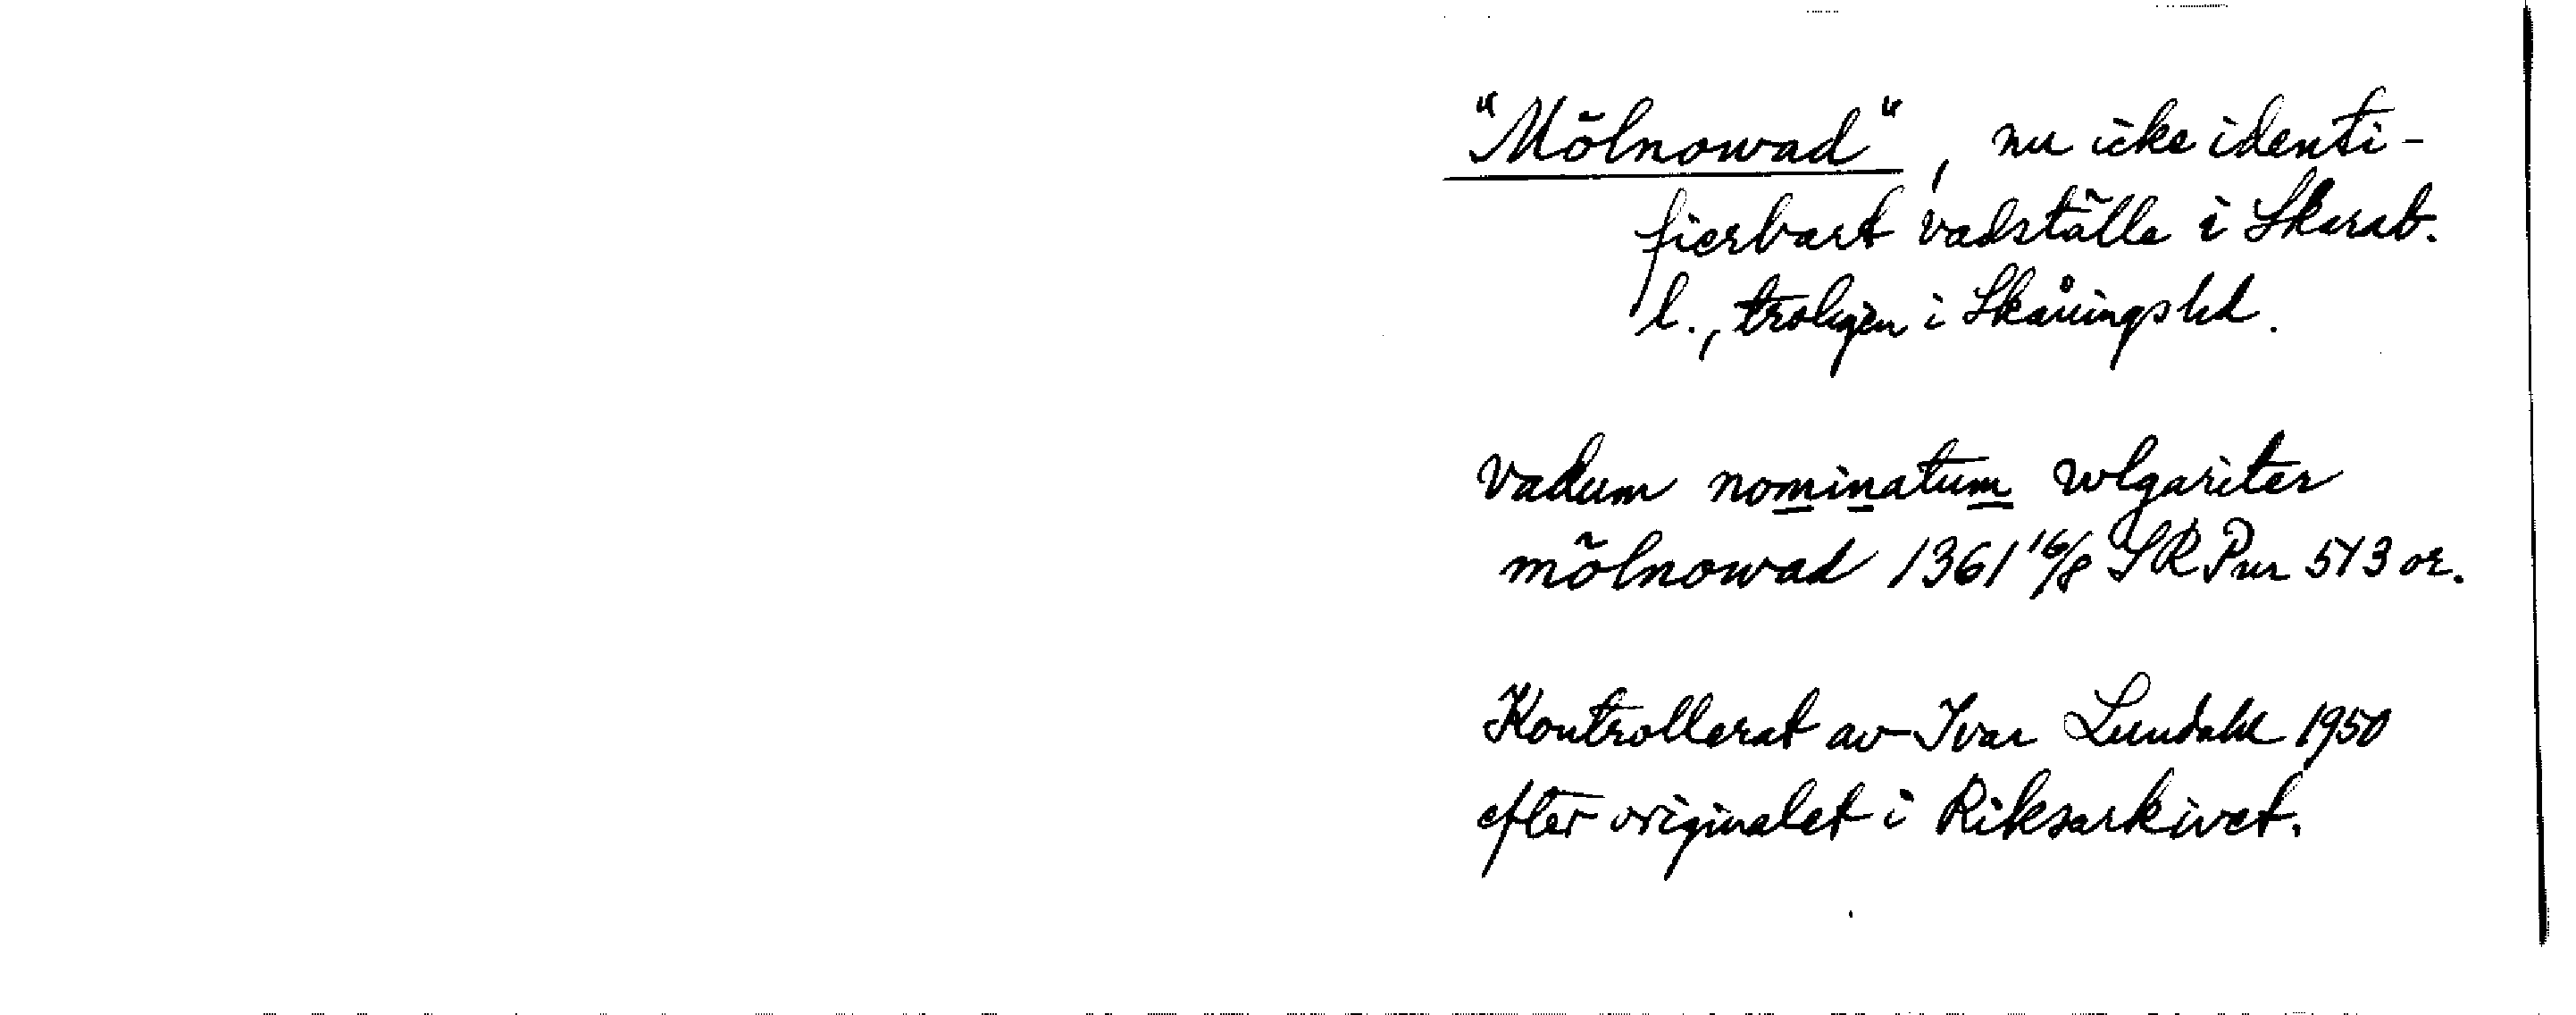 "Mölnowad", nu icke identi-
fierbart vadställe i Skarab.
l., troligen i Skånings hd.
vadum nominatum wlgariter
mölnowad 1361 16/8 SRPur 513 or.
Kontrollerat av Ivar Lundahl 1950
efter originalet i Riksarkivet.